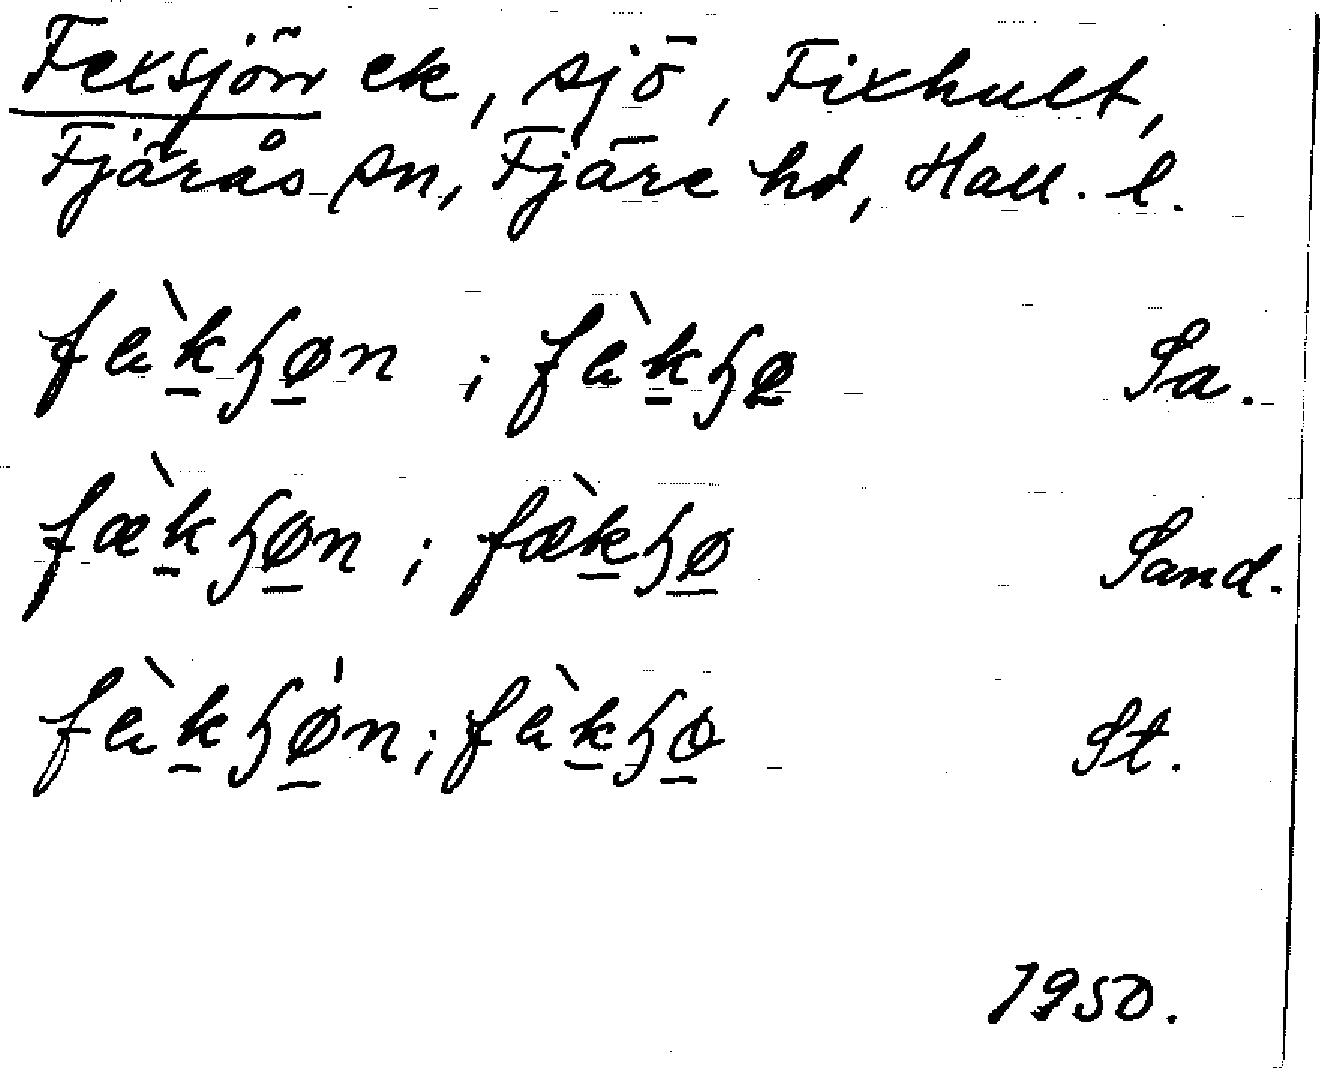 Fexsjön ek, sjö, Fixhult,
Fjärås sn, Fjäre hd, Hall. l.
fὲkɧøn ; fὲkɧø Sa.
fæ̀kɧøn ; fæ̀kɧø Sand.
fὲkɧøn ; fὲkɧø St.
1950.